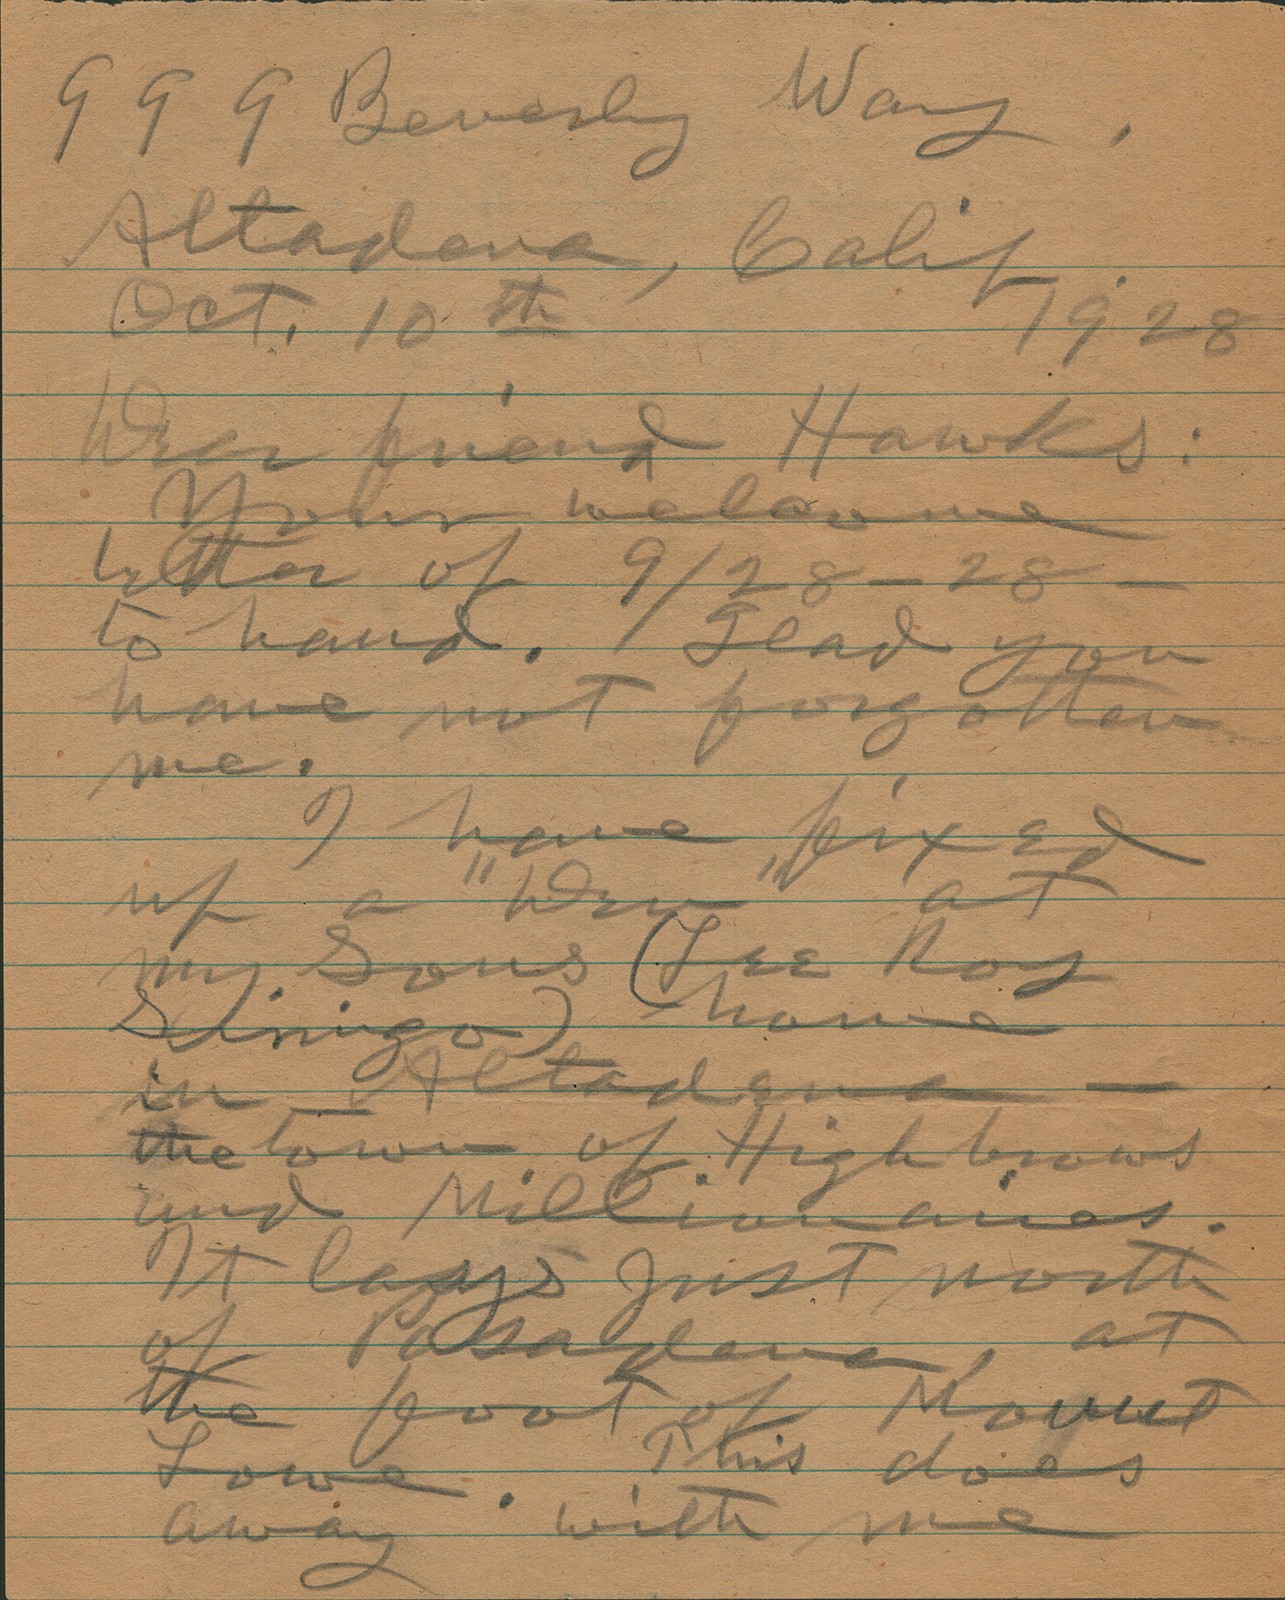 999 Beverly Way,
Altadena, Calif.
Oct. 10th 1928
Dear friend Hawks:
Your welcome
letter of 9/28-28-
to hand. Glad you
have not forgotten
me.
I have fixed
up a "Den" at
my Sons (Lee Roy
Siringo) home
in Altadena —
the town of Highbrows
and Millionaires.
It lays just north
of Pasadena, at
the foot of Mount
Lowe. This does
away with me